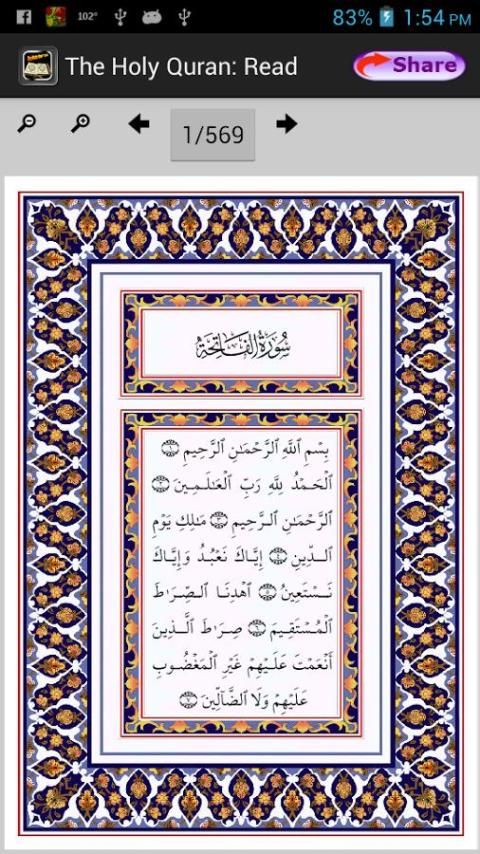 102°
83%
1:54 PM
The Holy Quran: Read
Share
1/569
سُورَةُ الفَاتِحَةِ
بِسْمِ ٱللَّهِ ٱلرَّحْمَٰنِ ٱلرَّحِيمِ ۝١
ٱلْحَمْدُ لِلَّهِ رَبِّ ٱلْعَٰلَمِينَ ۝٢
ٱلرَّحْمَٰنِ ٱلرَّحِيمِ ۝٣ مَٰلِكِ يَوْمِ
ٱلدِّينِ ۝٤ إِيَّاكَ نَعْبُدُ وَإِيَّاكَ
نَسْتَعِينُ ۝٥ ٱهْدِنَا ٱلصِّرَٰطَ
ٱلْمُسْتَقِيمَ ۝٦ صِرَٰطَ ٱلَّذِينَ
أَنْعَمْتَ عَلَيْهِمْ غَيْرِ ٱلْمَغْضُوبِ
عَلَيْهِمْ وَلَا ٱلضَّآلِّينَ ۝٧